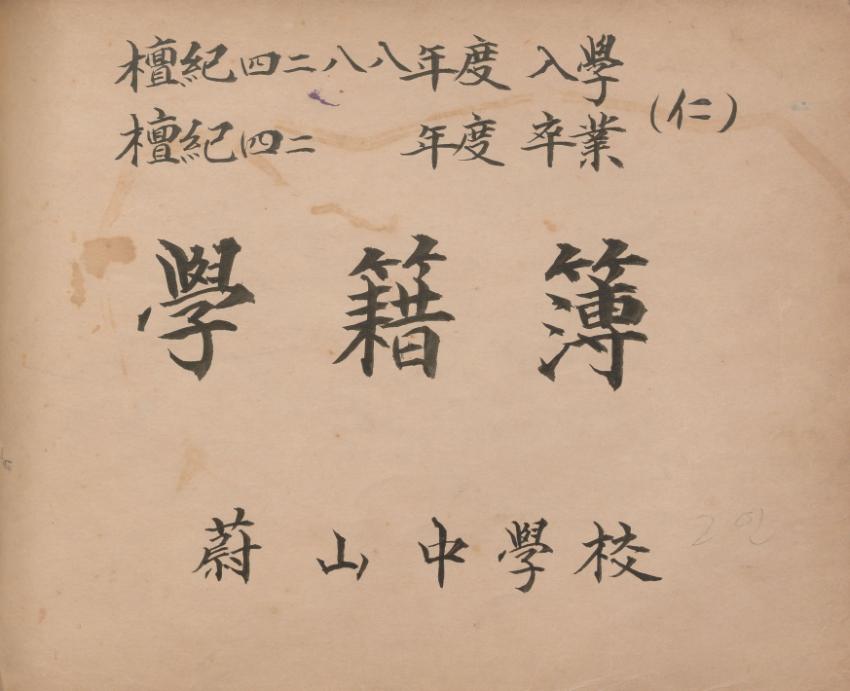 檀紀四二八八年度 入學
(仁)
檀紀四二 年度 卒業
學籍簿
蔚山中學校